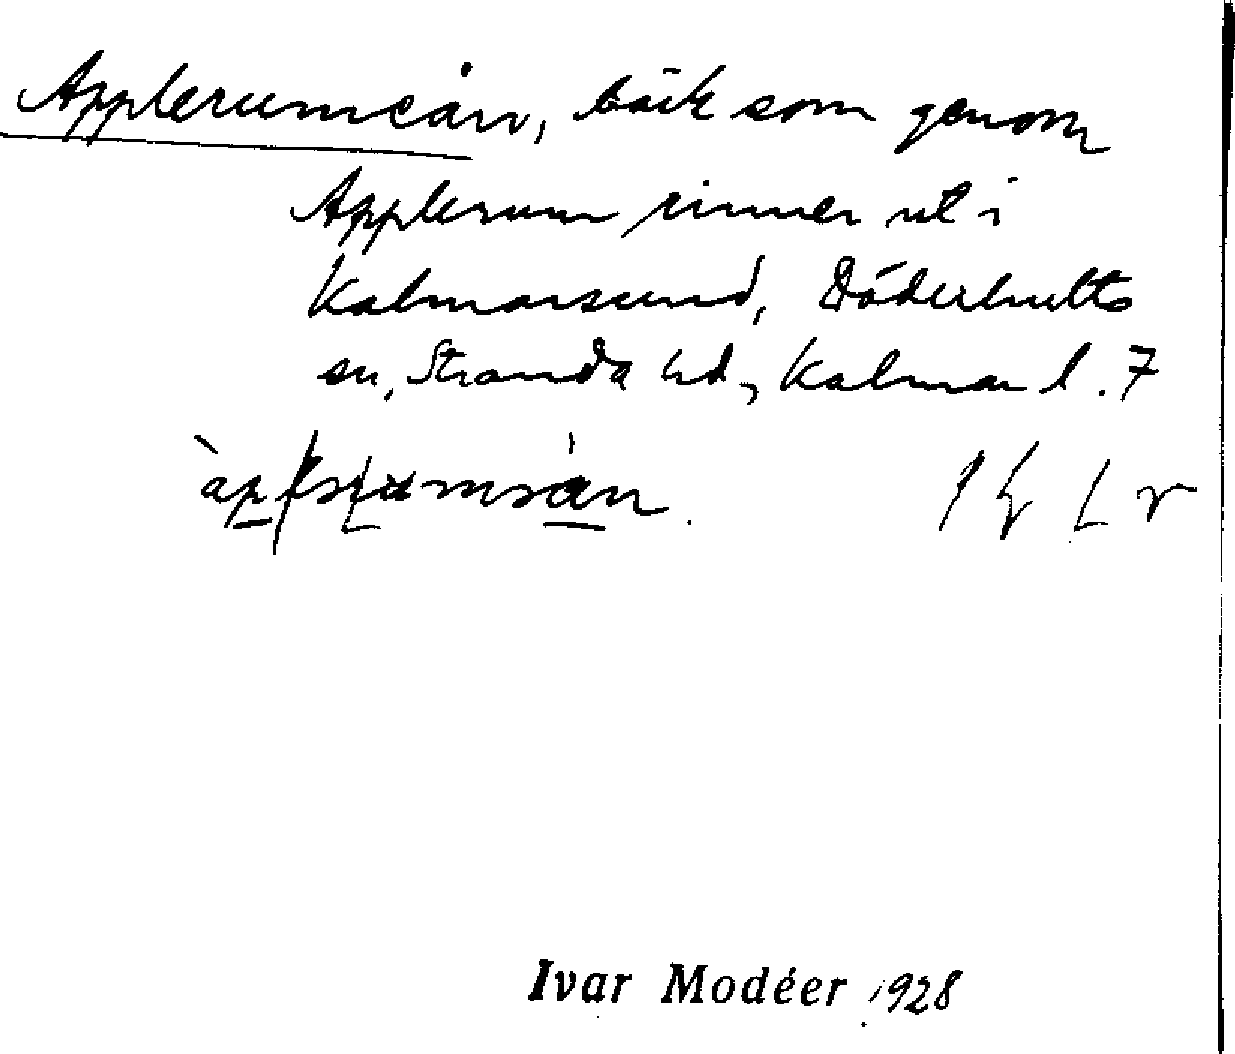 Applerumsån, bäck som genom
Applerum rinner ut i
Kalmarsund, Döderhults
sn, Stranda hd, Kalmar l. 7
Ivar Modéer 1928